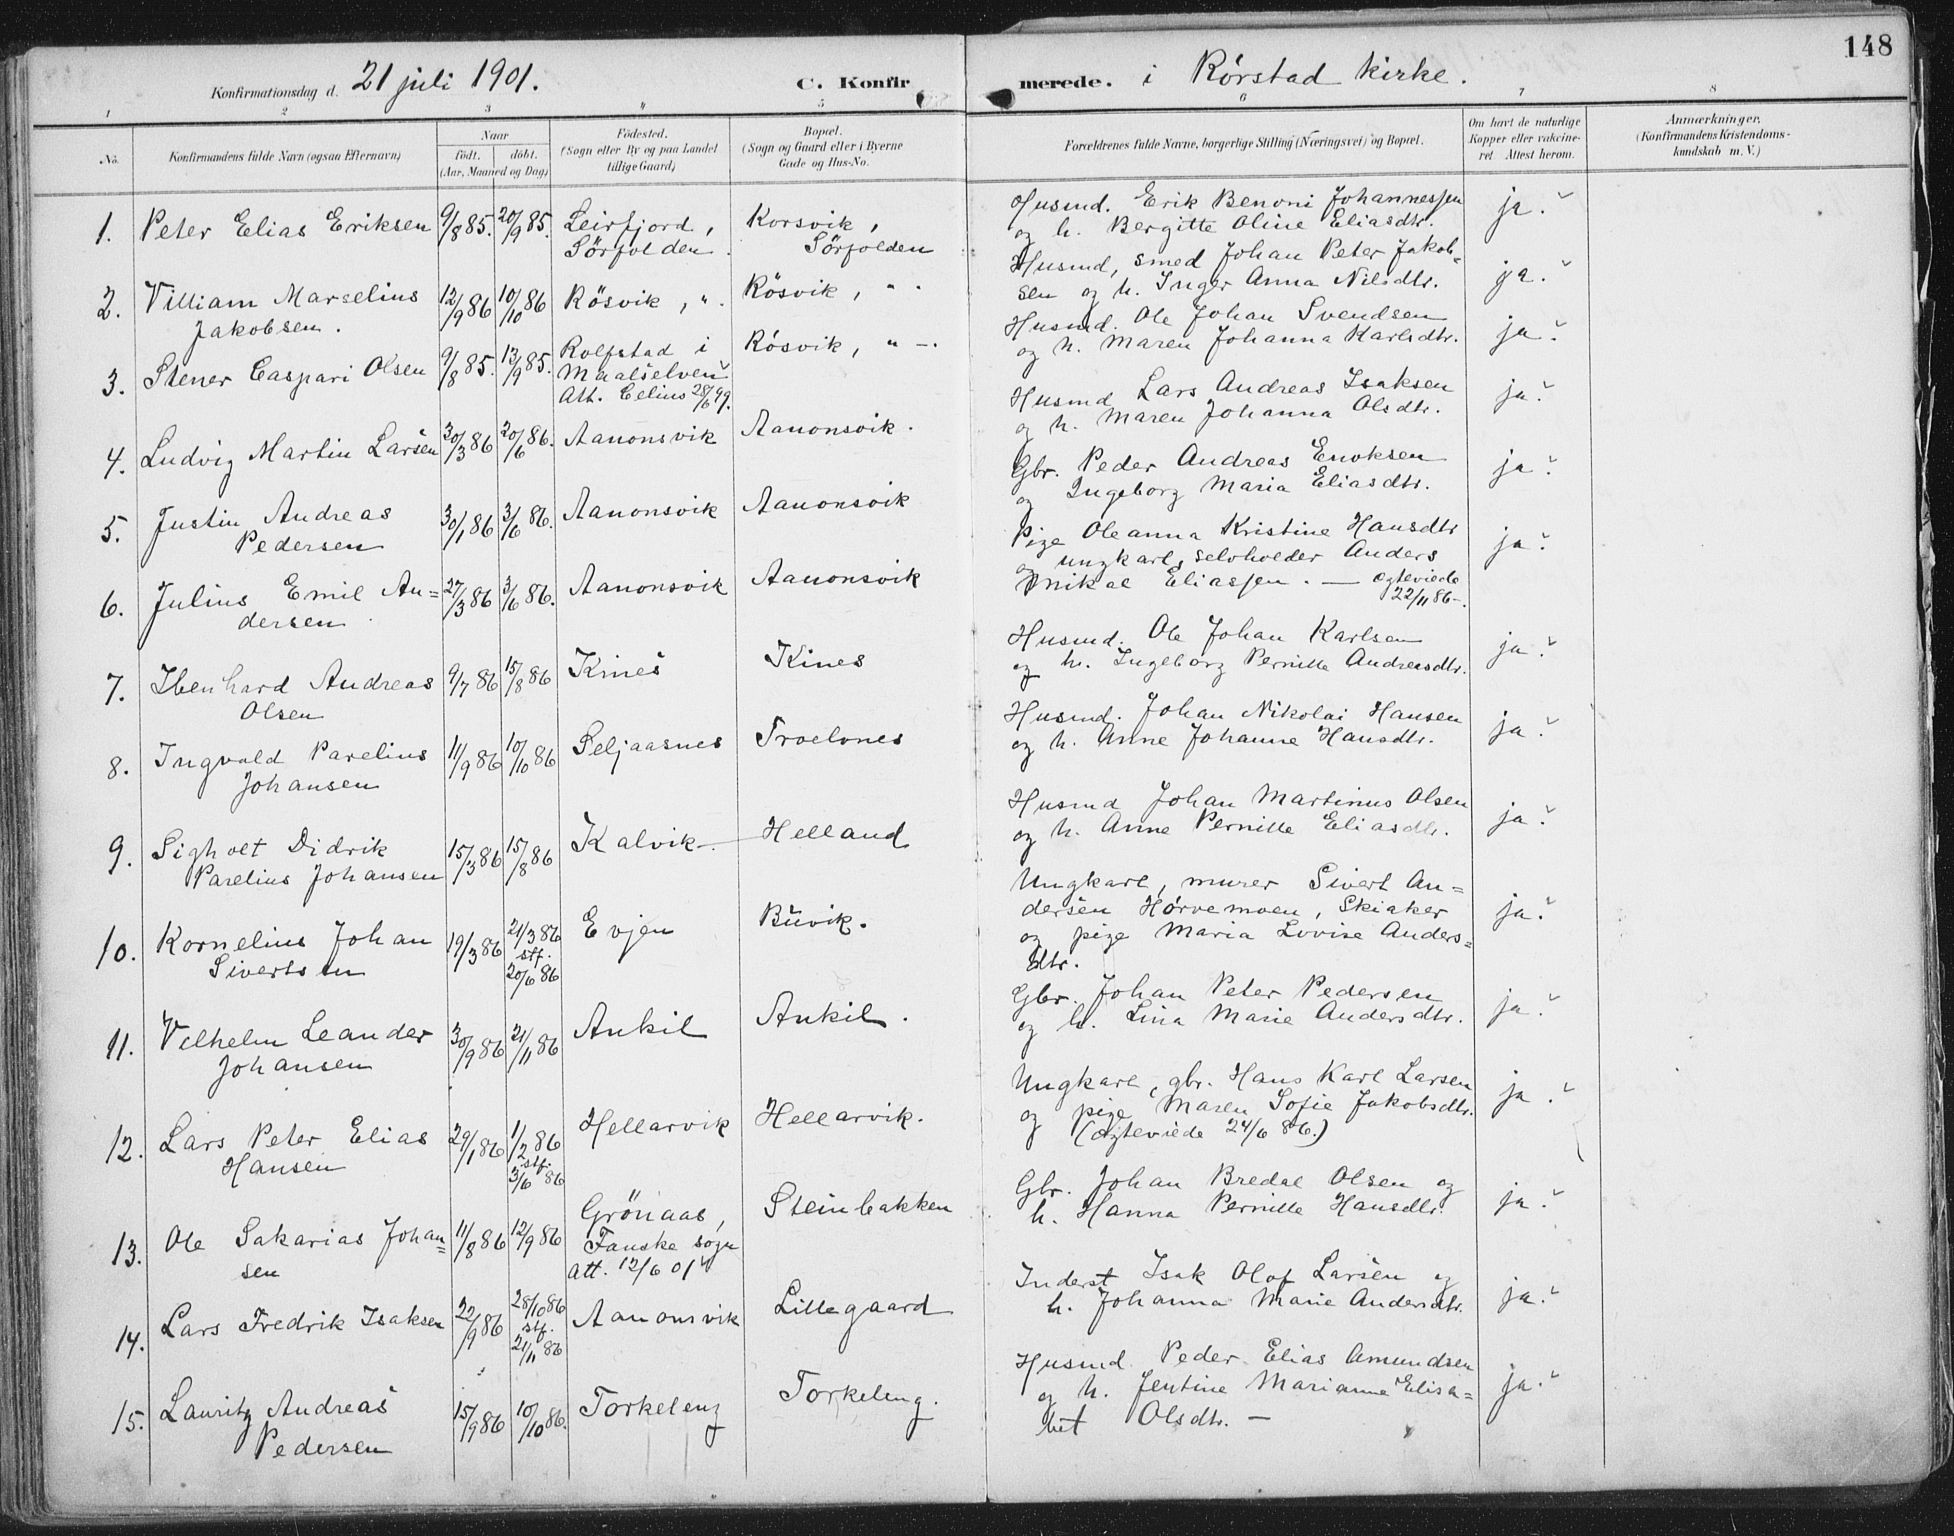 148
Konfirmationsdag d. 21 juli 1901. C. Konfirmerede. i Rörstad kirke.
1 2 3 4 5 6 7 8
No. Konfirmandens fulde Navn (ogsaa Efternavn) Naar födt. döbt. (Aar, Maaned og Dag) Födested. (Sogn eller By og paa Landet tillige Gaard) Bopæl. (Sogn og Gaard eller i Byerne Gade og Hus-No. Forældrenes fulde Navne, borgerlige Stilling (Næringsvei) og Bopæl. Om havt de naturlige Kopper eller vakcineret Attest herom. Anmærkninger. (Konfirmandens Kristendomskundskab m. V.)
1. Peter Elias Eriksen 9/8 85. 20/9 85. Leirfjord, Korsvik, Husmd. Erik Benoni Johannessen ja.
Sörfolden. Sörfolden og h. Bergitte Oline Eliasdtr.
2. Villiam Marselius 12/9 86 10/10 86 Rösvik, ". Rösvik, " . Husmd, smed Johan Peter Jakob= ja.
Jakobsen. sen og h. Inger Anna Nilsdtr.
3. Stener Caspari Olsen 9/8 85. 13/9 85. Rolfstad i Rösvik, " -. Husmd. Ole Johan Svendsen ja.
Maalselven og h. Maren Johanna Karlsdtr.
Att. 28/6 99.
4. Ludvig Martin Larsen 30/3 86 20/6 86. Aanonsvik Aanonsvik. Husmd Lars Andreas Isaksen ja.
og h. Maren Johanna Olsdtr.
5. Justin Andreas 30/1 86 3/6 86. Aanonsvik Aanonsvik Gbr. Peder Andreas Enoksen ja.
Pedersen og Ingeborg Maria Eliasdtr.
6. Julius Emil An= 27/3 86 3/6 86. Aanonsvik Aanonsvik Pige Oleanna Kristine Hansdtr ja.
dersen og ungkarl, selvholder Anders
Mikal Eliassen. — ægteviede
22/11 86-.
7. Ibenhard Andreas 9/7 86 15/8 86 Kines Kines Husmd. Ole Johan Karlsen ja.
Olsen og h. Ingeborg Pernille Andreasdtr.
8. Ingvald Parelius 11/9 86 10/10 86 Seljaasnes Troelvnes Husmd. Johan Nikolai Hansen ja.
Johansen og h. Anne Johanne Hansdtr.
9. Sigholt Didrik 15/3 86 15/8 86 Kalvik Helland Husmd Johan Martinus Olsen ja.
Parelius Johansen og h. Anne Pernille Eliasdtr.
10. Kornelius Johan 19/3 86 21/3 86 Evjen Buvik. Ungkarl, murer Sivert An=
Sivertsen stf. dersen Hörvemoen, Skiaker ja.
20/6 86 og pige Maria Lovise Anders=
dtr.
11. Vilhelm Leander 30/9 86 21/11 86 Ankil Ankil. Gbr. Johan Peter Pedersen ja.
Johansen og h. Lina Marie Andersdtr.
12. Lars Peter Elias 29/1 86 1/2 86 Hellarvik Hellarvik. Ungkarl, gbr. Hans Karl Larsen ja.
Hansen stf. og pige Maren Sofie Jakobsdtr.
3/6 86 (ægteviede 24/6 86.)
13. Ole Sakarias Johan= 11/8 86 12/9 86 Grönaas, Steinbakken Gbr. Johan Bredal Olsen og ja.
sen Fauske sogn h. Hanna Pernille Hansdtr.
Att. 12/6 01
14. Lars Fredrik Isaksen 22/9 86 28/10 86 Aanonsvik Lillegaard Inderst Isak Olof Larsen og ja.
stf. h. Johanna Marie Andersdtr.
21/11 86
15. Lauritz Andreas 15/9 86 10/10 86. Torkeleng Torkeleng. Husmd. Peder Elias Amundsen ja.
Pedersen og h. Jentine Marianne Elisa=
bet Olsdtr. —